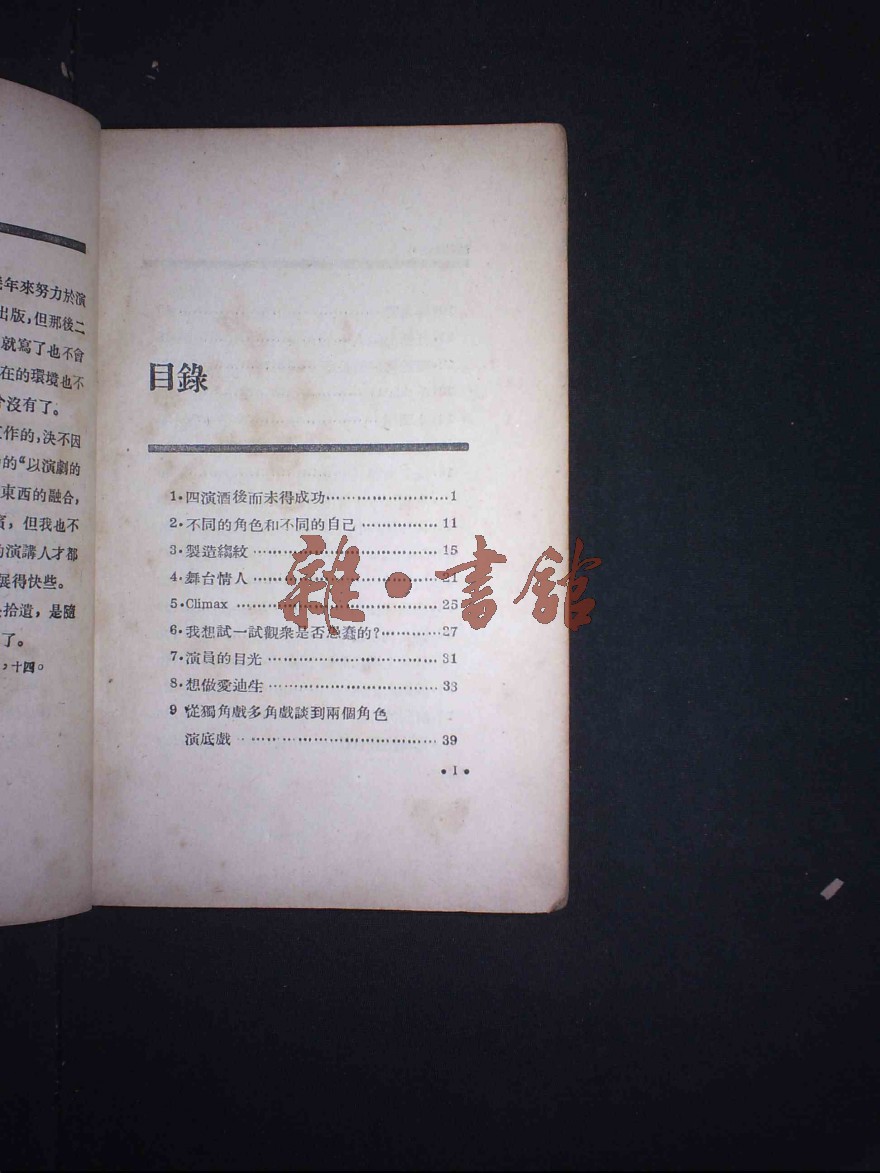 年來努力於演
出版，但那後二
就寫了也不會
在的環境也不
沒有了。
作的，決不因
的“以演劇的
東西的融合，
，但我也不
演講人才都
展得快些。
拾遺，是隨
了。
，十四。
目錄
1•四演酒後而未得成功……………………1
2•不同的角色和不同的自己……………11
3•製造縐紋………………………………15
4•舞台情人………………………………21
5•Climax…………………………………25
6•我想試一試觀衆是否愚蠢的？…………27
7•演員的目光……………………………31
8•想做愛迪生……………………………33
9•從獨角戲多角戲談到兩個角色
演底戲……………………………………39
•1•
雜•書館